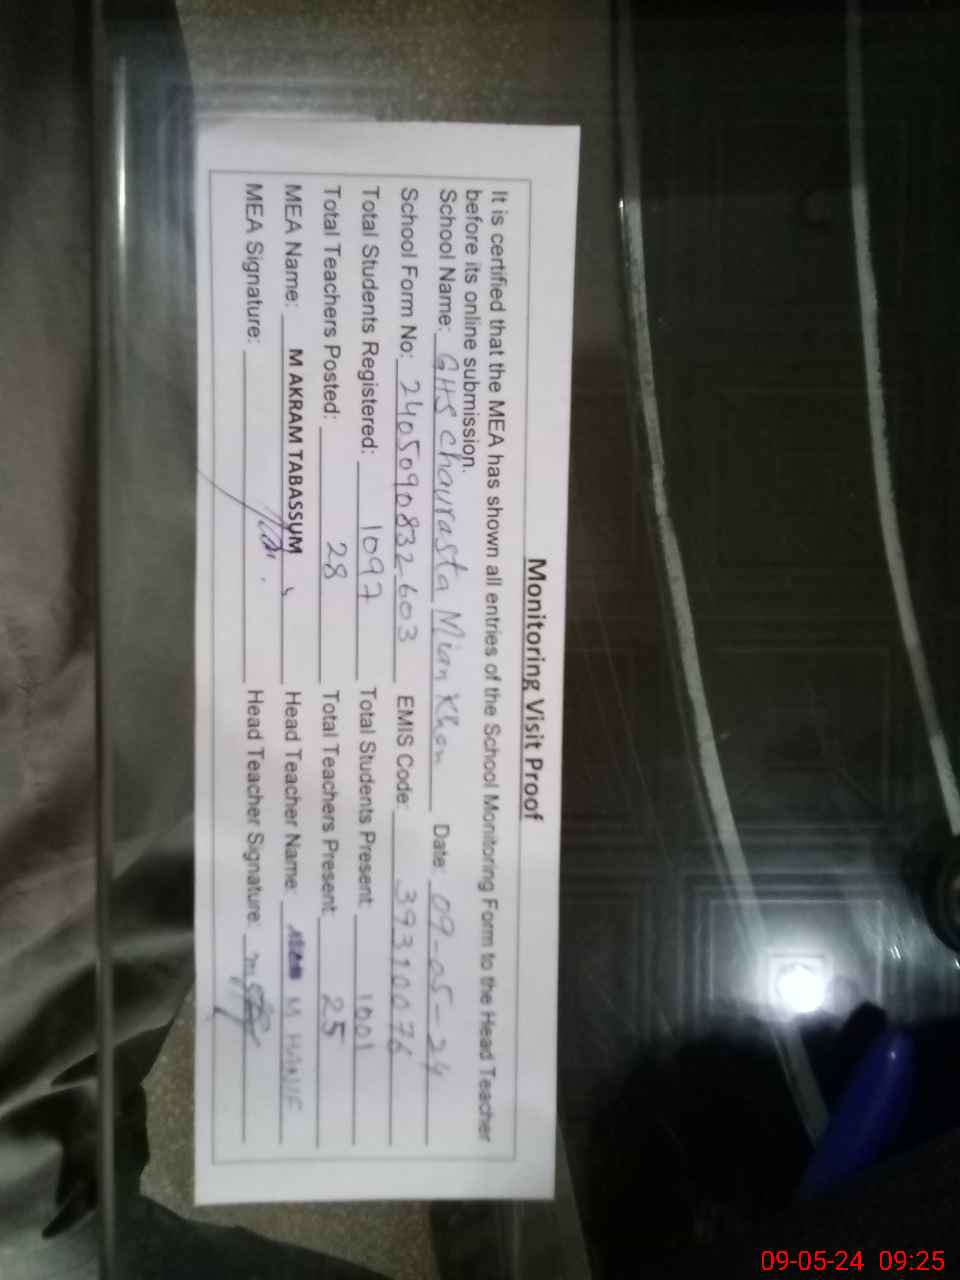 Monitoring Visit Proof
It is certified that the MEA has shown all entries of the School Monitoring Form to the Head Teacher
before its online submission.
School Name: GHS Chaurasta Mian Khan Date: 09-05-24
School Form No: 2405090832603 EMIS Code: 39310076
Total Students Registered: 1097 Total Students Present: 1001
Total Teachers Posted: 28 Total Teachers Present: 25
MEA Name: M AKRAM TABASSUM Head Teacher Name: M HANIF
MEA Signature: Head Teacher Signature:
09-05-24 09:25